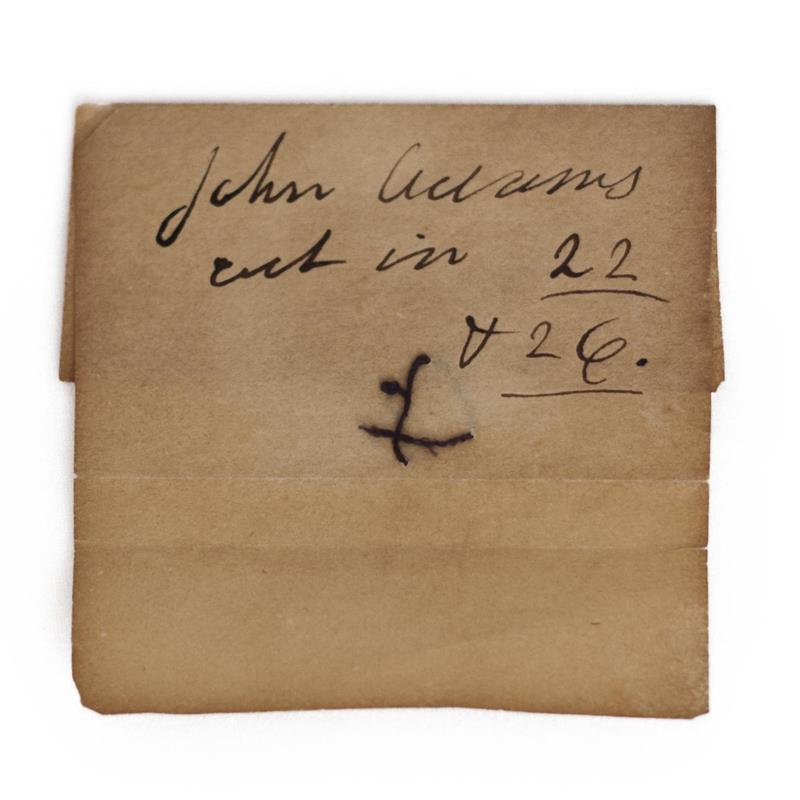 John Adams
cut in 22
& 26.